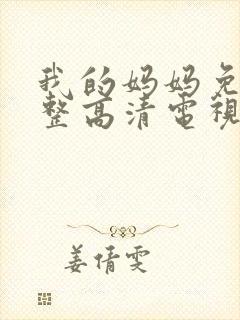 我的妈妈免
整高清電視
姜倩雯